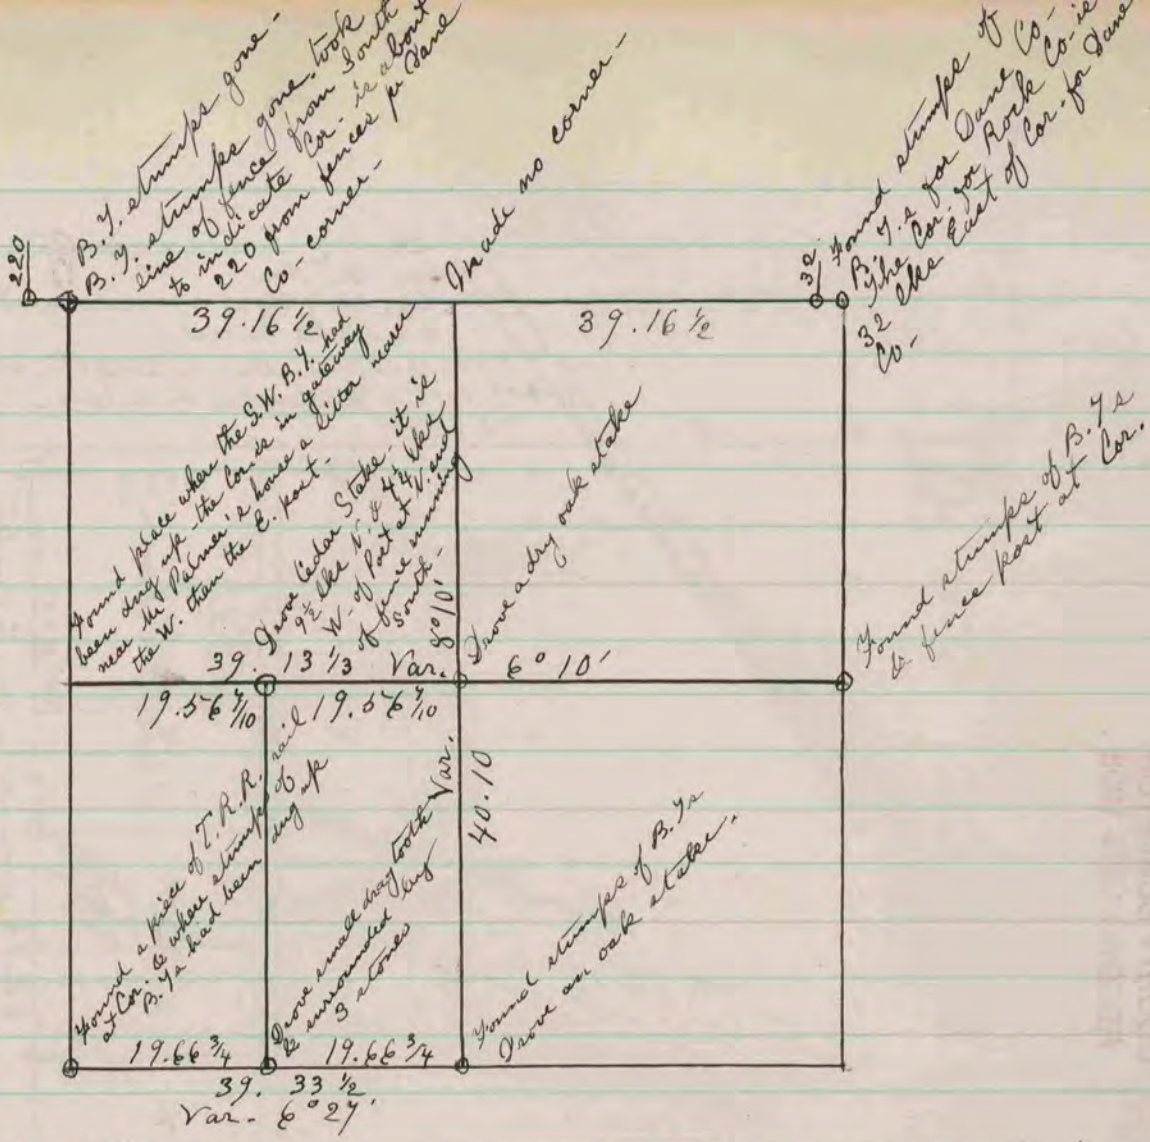 B.T. stumps gone -
B.T. stumps gone. took
line of fence from South
to indicate Cor. is about
220 from fences pr Dane
Co - corner -
Made no corner -
Found stumps of
B. T.s for Dane Co -
The Cor. for Rock Co - is
32 lks East of Cor. for Dane
Co -
220
32
39.16 ½
39.16 ½
Found place where the S.W. B.T. had
been dug up - the Cor. is in gateway
near Mr Palmer's house a little nearer
the W. than the E. post -
Drove Cedar Stake - it is
9½ lks N. & 4¼ lks
W. of Post at N. end
of fence running
South -
8° 10'
Drove a dry oak stake
Found stumps of B.T.s
& fence post at Cor.
39. 13 ⅓ Var. 6° 10'
19.56 7/10
19.56 7/10
Found a piece of T. R.R. rail
at Cor. & where stumps of
B.T.s had been dug up
Drove small drag tooth
& surrounded by
3 stones
Var.
40.10
Found stumps of B.T.s
Drove an oak stake.
19.66 ¾
19.66 ¾
39. 33 ½
Var. 6° 27'